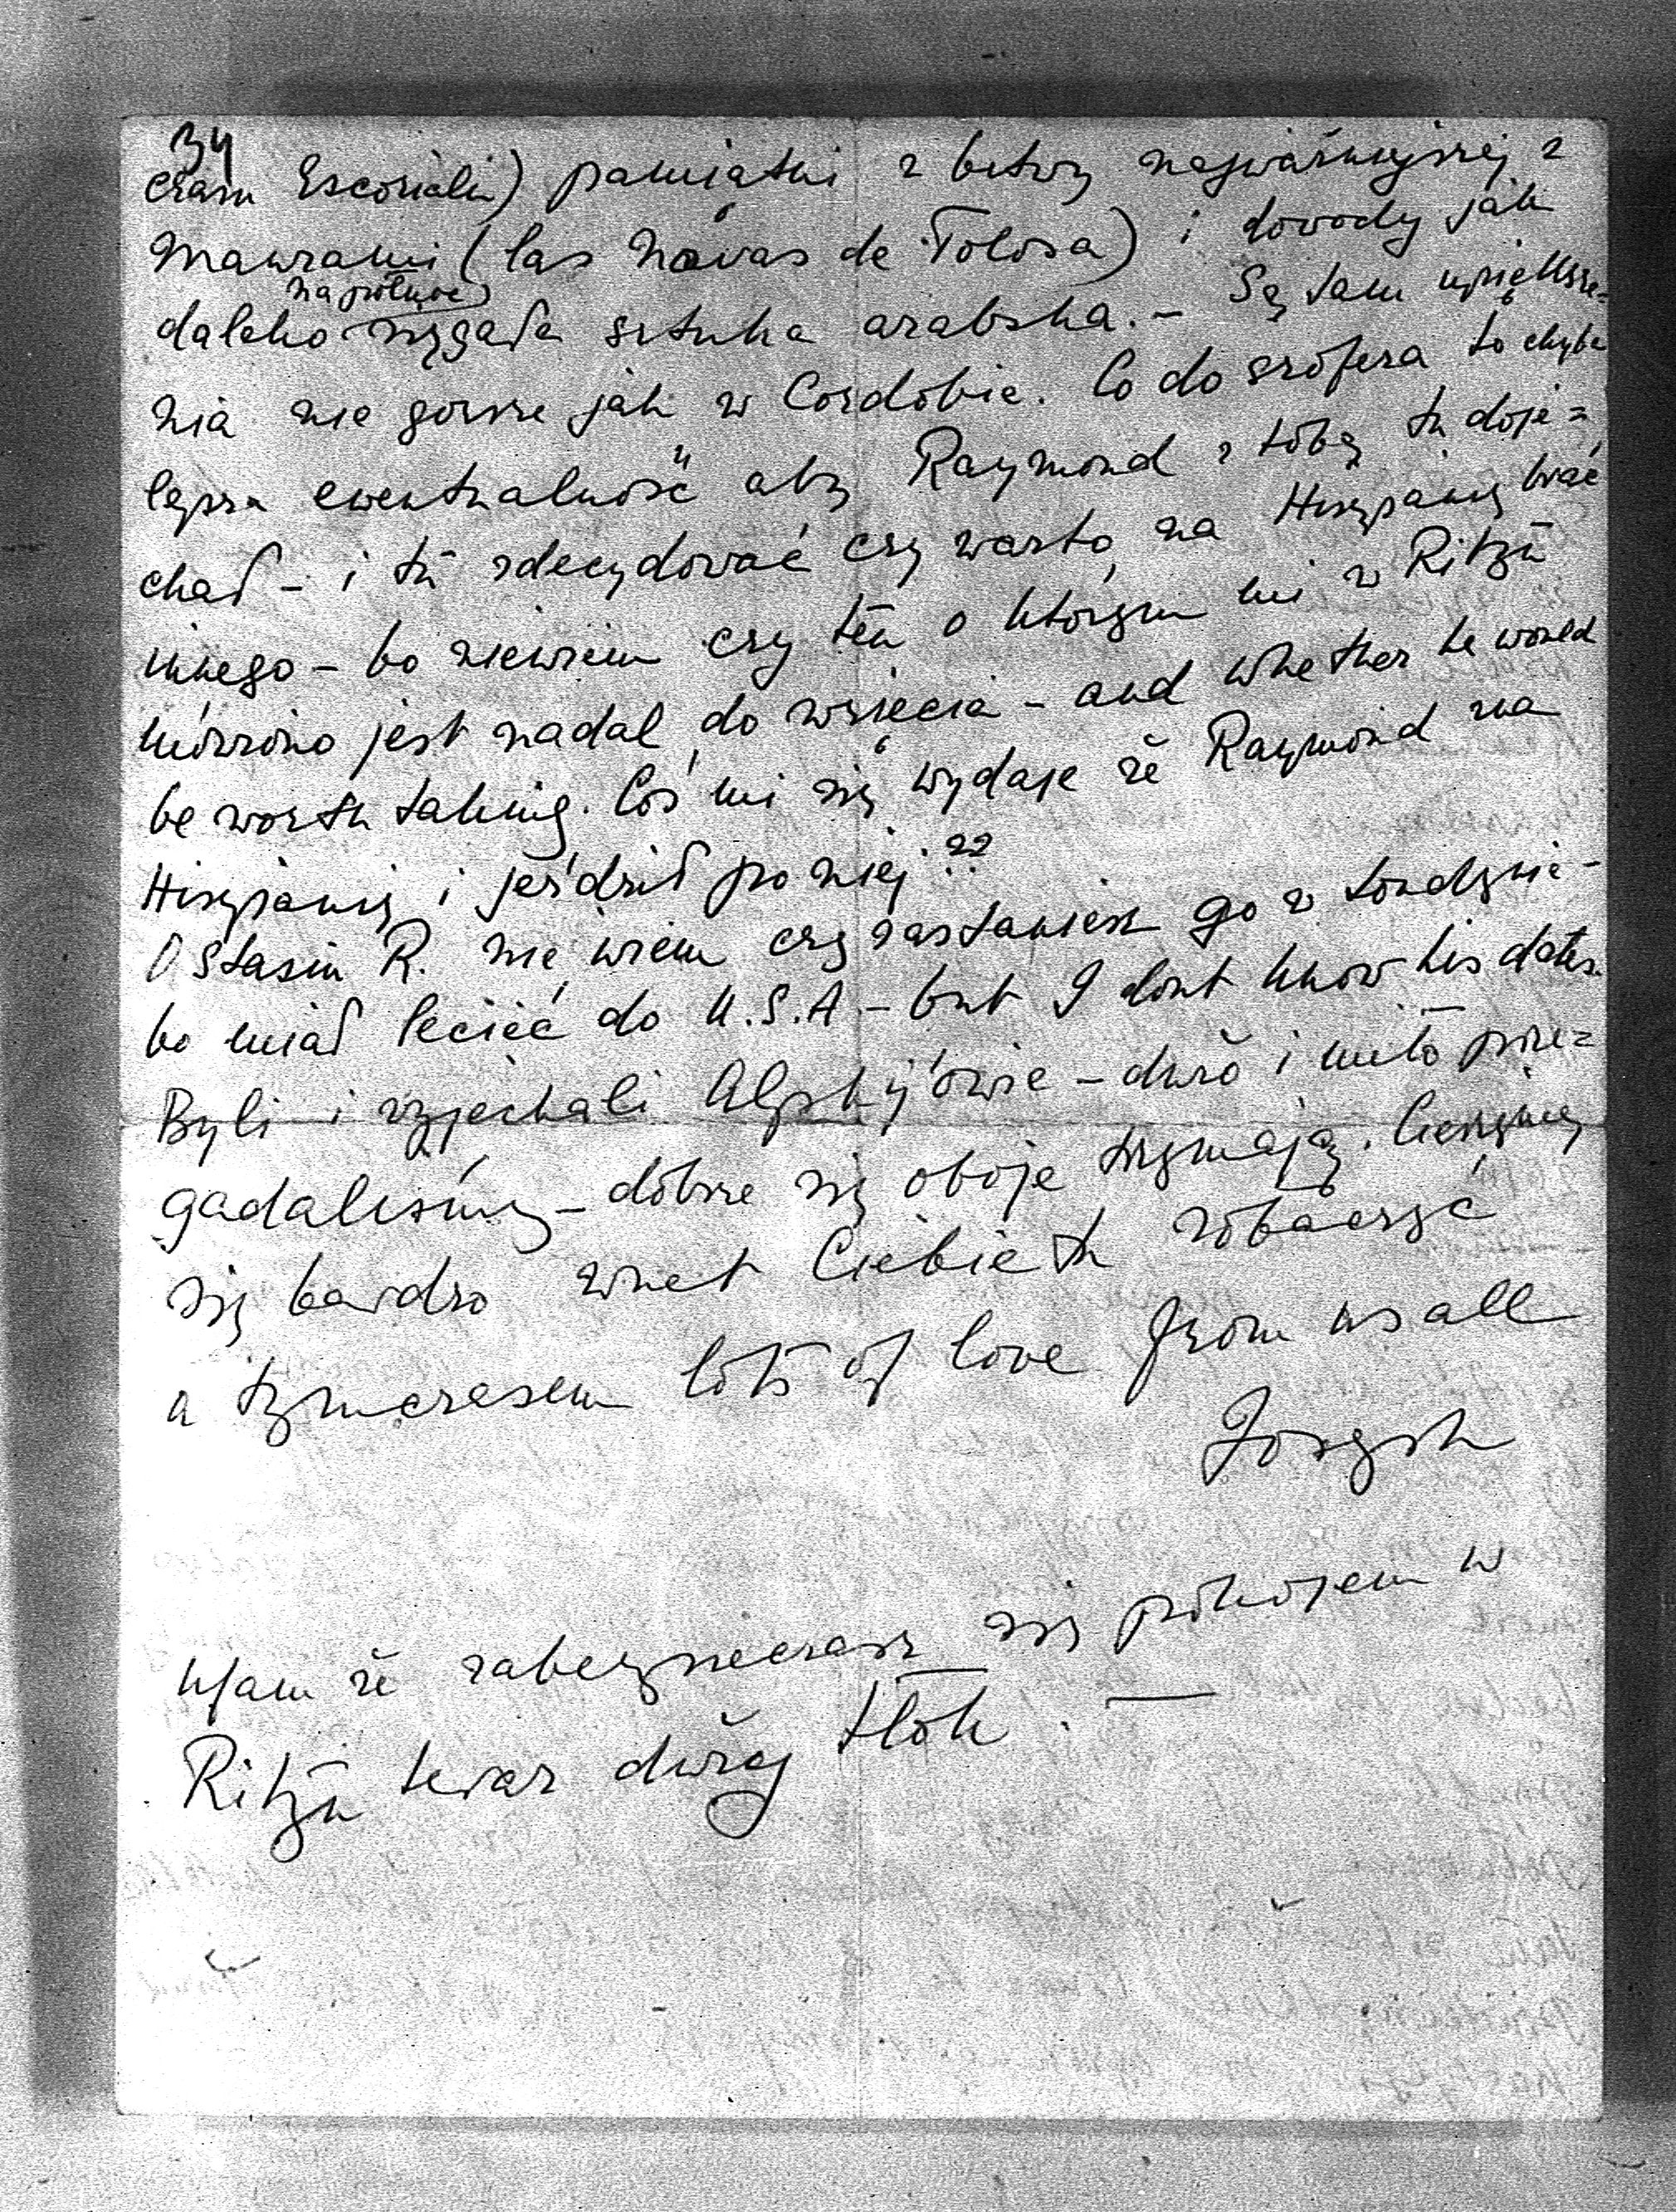 34
czasu Escorialu) pamiątki z bitwy najważniejszej z
Maurami (las Navas de Tolosa) i dowody jak
na północ
daleko sięgała sztuka arabska. - Są tam upiększe=
nia nie gorsze jak w Cordobie. Co do szofera to chyba
lepsza ewentualność aby Raymond z tobą tu doje=
chał - i tu zdecydować czy warto na Hiszpanię brać
innego - bo niewiem czy ten o którym mi w Ritzu
mówiono jest nadal do wzięcia - and whether he would
be worth taking. Coś mi się wydaje że Raymond zna
Hiszpanię i jeździł po niej??
O Stasiu R. nie wiem czy zastaniesz go w Londynie -
bo miał lecieć do U.S.A - but I dont know his dates.
Byli i wyjechali Alphy'owie - dużo i miło prze=
gadaliśmy - dobrze się oboje trzymają. Cieszymy
się bardzo wnet Ciebie tu zobaczyć
a tymczasem lots of love from us all
Joseph
Ufam że zabezpieczasz się pokojem w
Ritzu teraz duży tłok. -